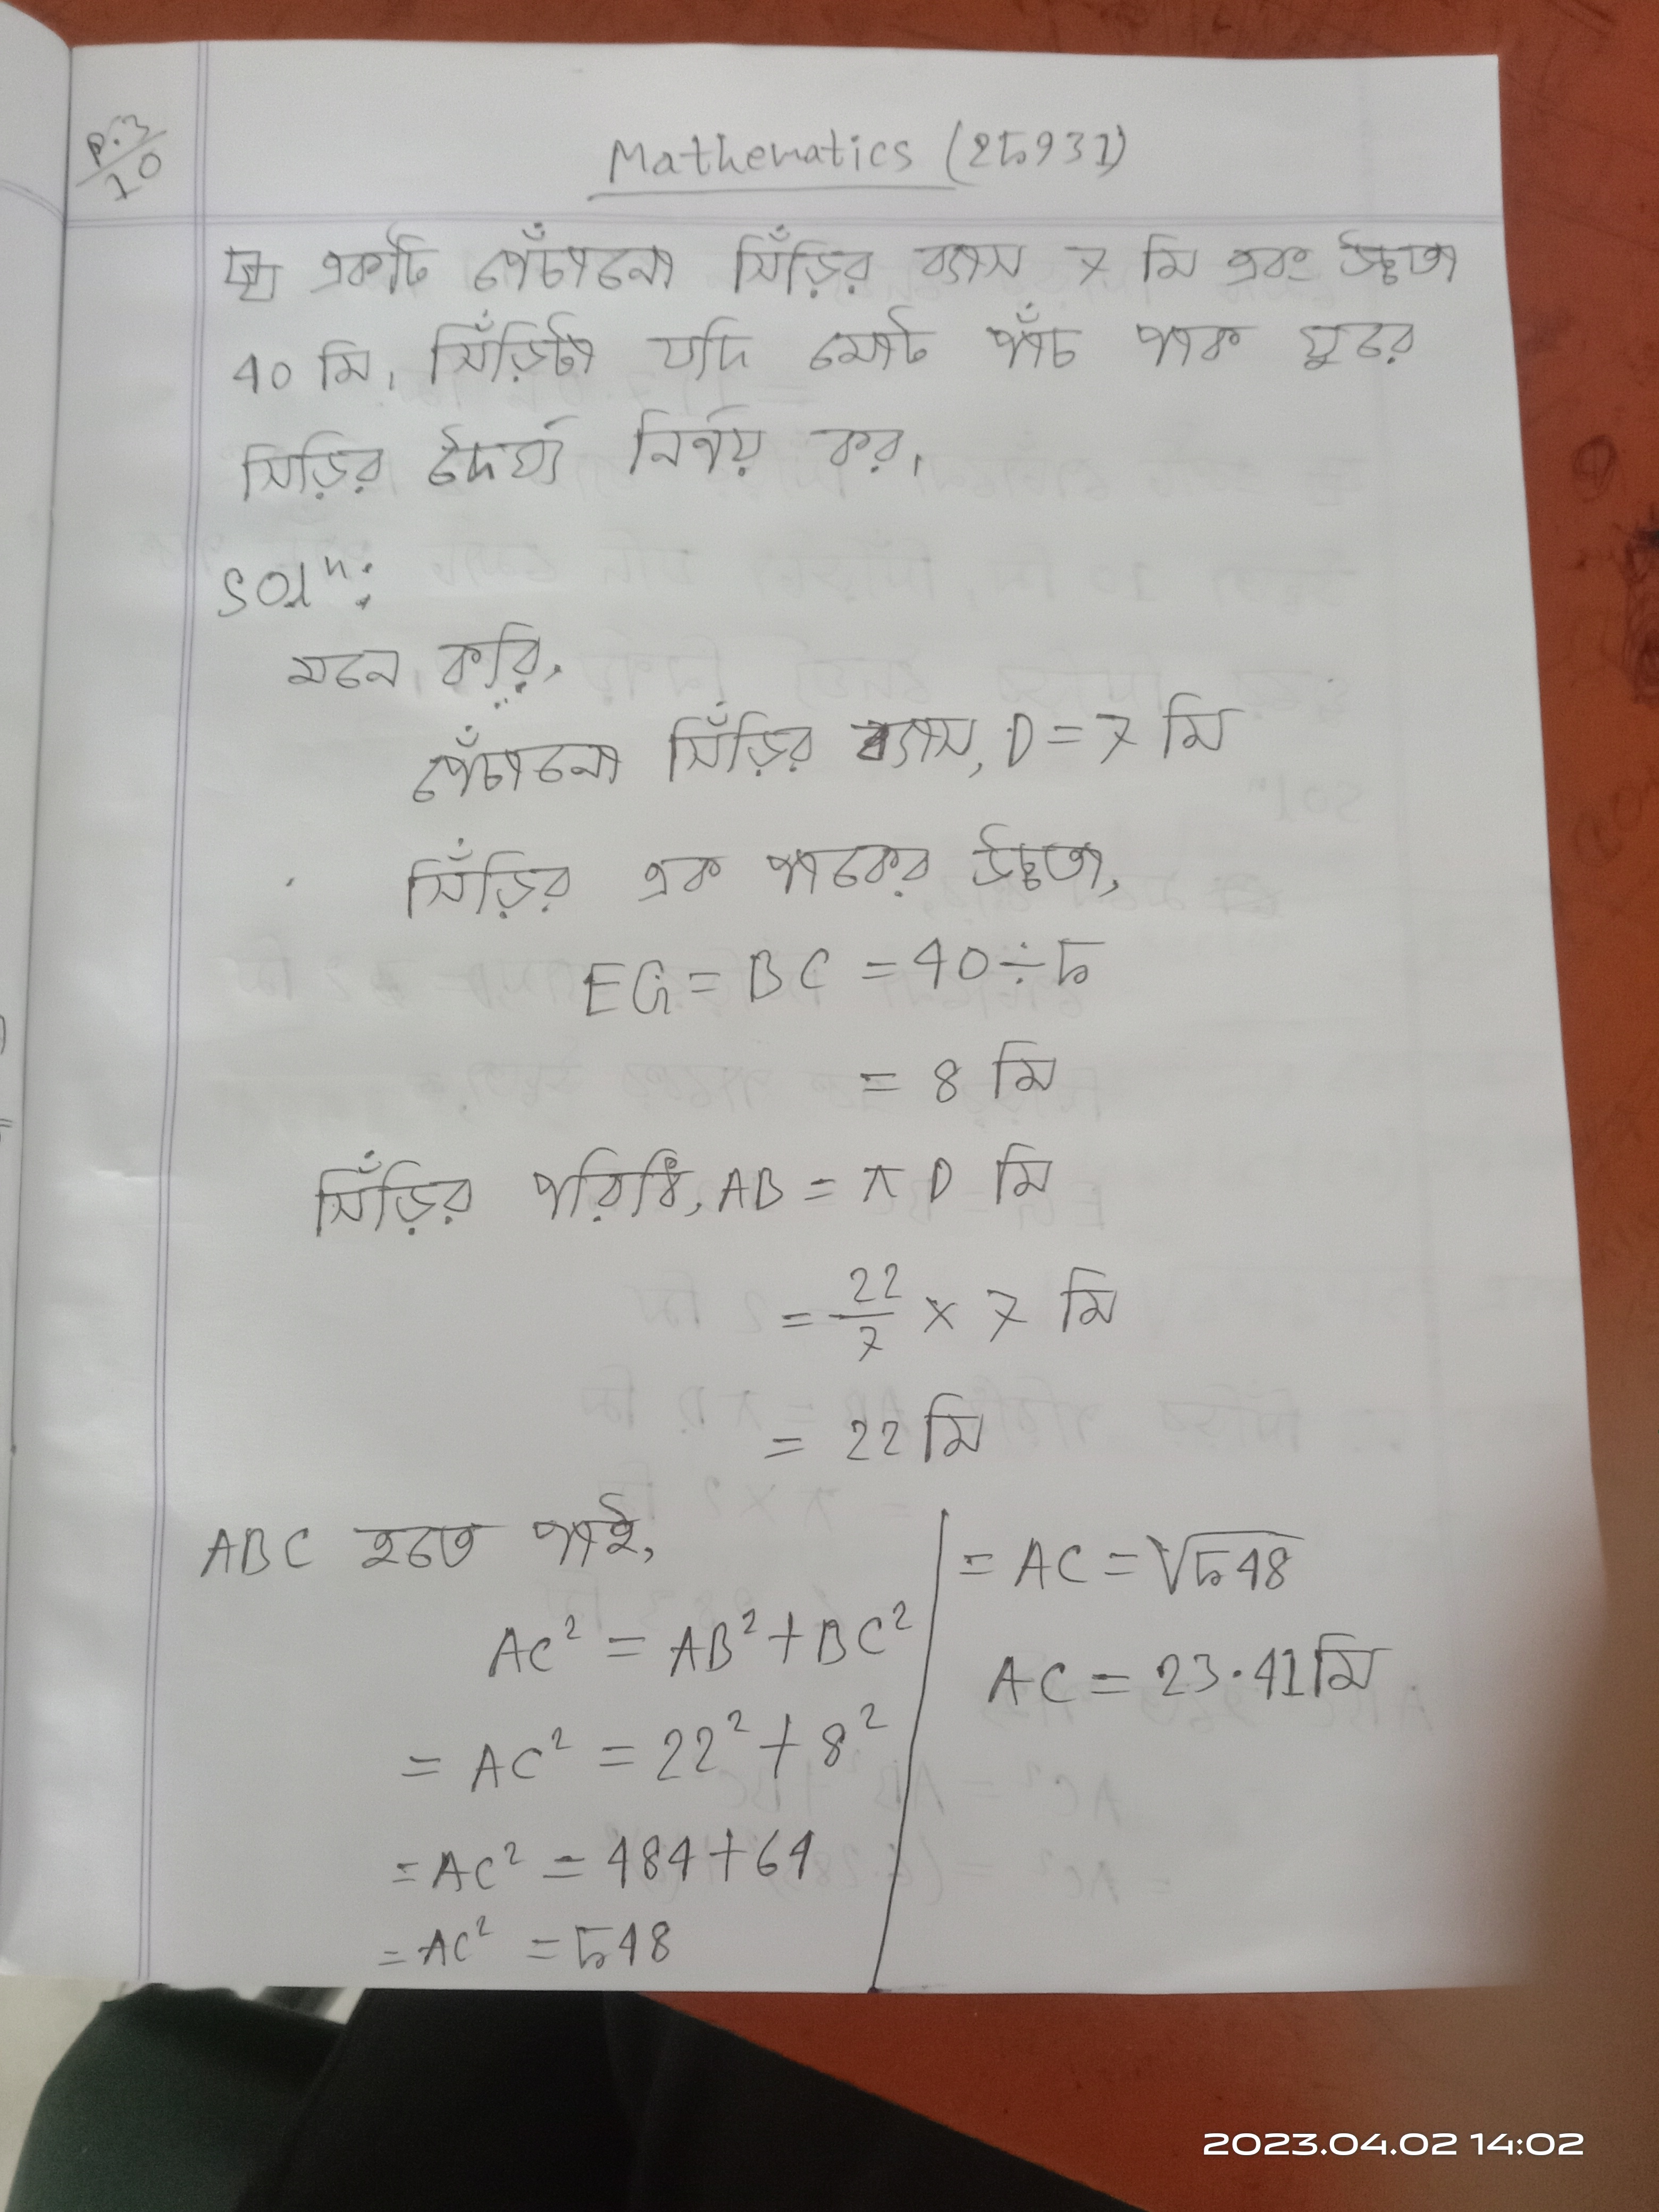 P.3/10
Mathematics (25931)
প্রঃ একটি পেঁচানো সিঁড়ির ব্যাস 7 মি এবং উচ্চতা
40 মি। সিঁড়িটা যদি মোট পাঁচ পাক ঘুরে
সিড়ির দৈর্ঘ্য নির্ণয় কর।
Solⁿ:
মনে করি,
পেঁচানো সিঁড়ির ব্যাস, D = 7 মি
সিঁড়ির এক পাকের উচ্চতা,
EG = BC = 40 ÷ 5
= 8 মি
সিঁড়ির পরিধি, AB = π D মি
= 22/7 × 7 মি
= 22 মি
ABC হতে পাই,
AC² = AB² + BC²
= AC² = 22² + 8²
= AC² = 484 + 64
= AC² = 548
= AC = √548
AC = 23.41 মি
2023.04.02 14:02